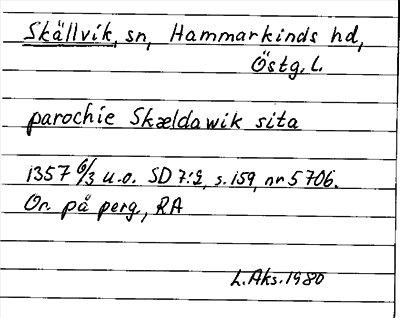 Skällvik, sn, Hammarkinds hd,
Östg. L.
parochie Skældawik sita
1357 6/3 u.o. SD 7:2, s. 159, nr 5706.
Or. på perg., RA
L. Aks. 1980